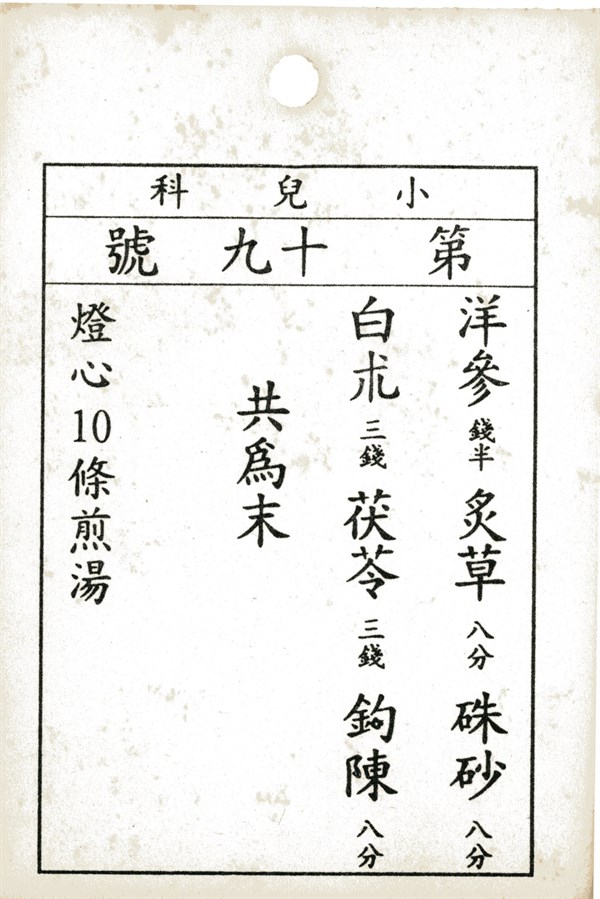 小兒科
第十九號
洋參錢半炙草八分硃砂八分
白朮三錢茯苓三錢鈎陳八分
共為末
燈心10條煎湯